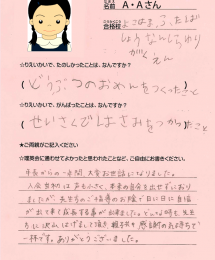 名前 A・Aさん
合格校
よこはまふたば
しょうなんしらゆり
がくえん
☆りえいかいで、たのしかったことは、なんですか？
(どうぶつのおめんをつくったこと)
☆りえいかいで、がんばったことは、なんですか？
(せいさくではさみをつかったこと)
★ご両親がご記入ください
☆理英会に通わせてよかったと思われたことなど、ご自由にお書きください。
年長からの一年間、大変お世話になりました。
入会当初は声も小さく、本来の自分を出せずにおり
ましたが、先生方のご指導のお陰で日に日に自信
が出て来て成長する事が出来ました。どんな時も、先生
一杯です。ありがとうございました。